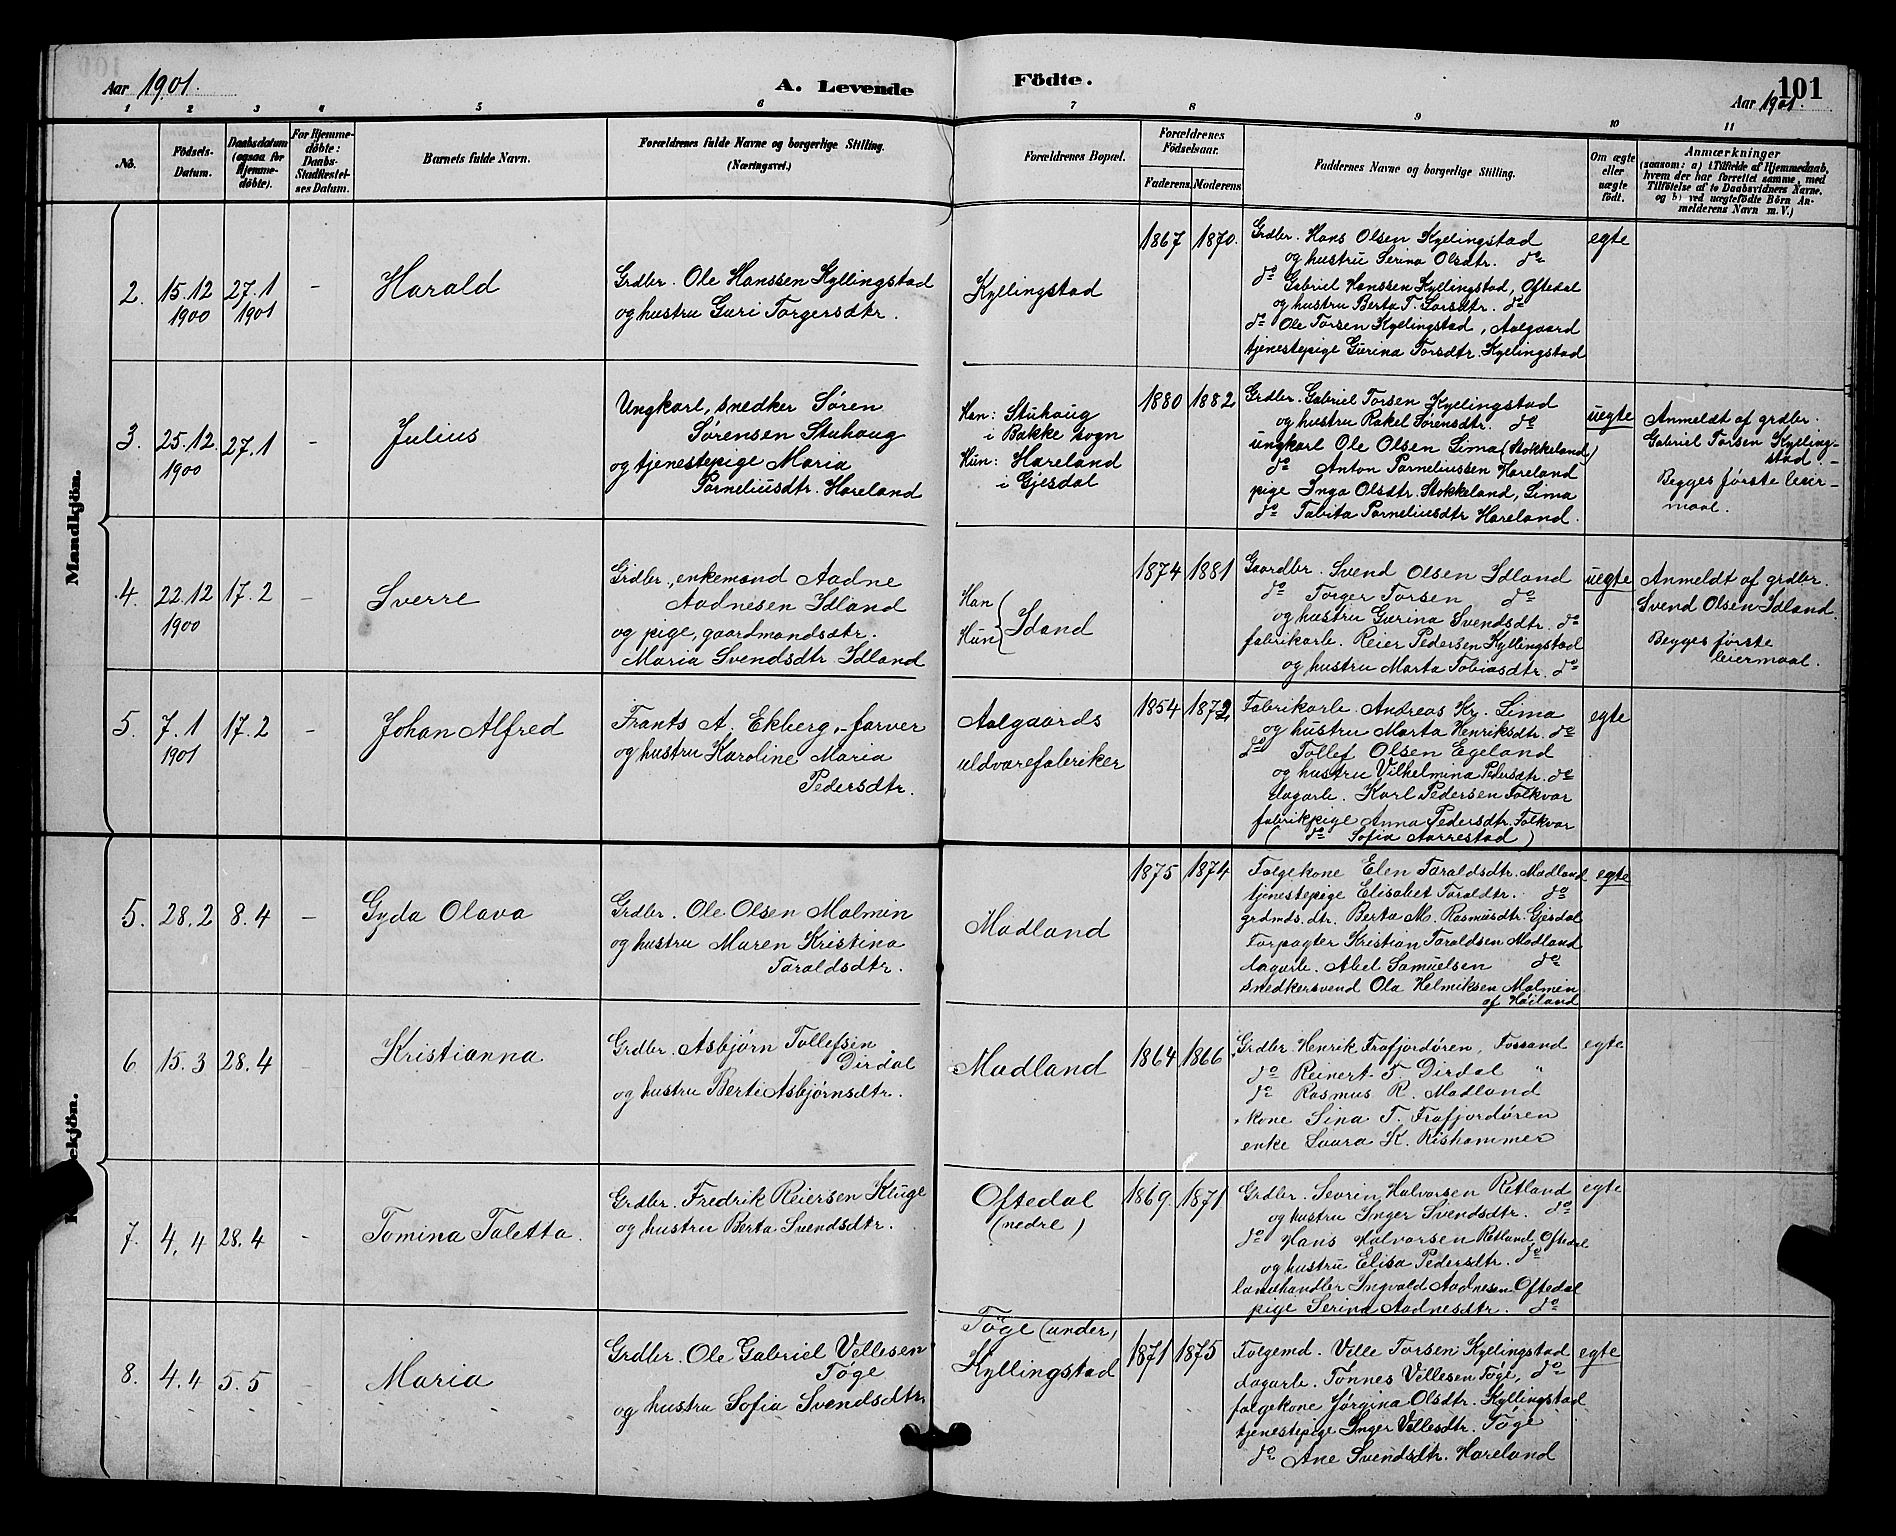 Aar 1901.
A. Levende Födte.
101
Aar 1901.
1 2 3 4 5 6 7 8 9 10 11
No.
Födsels-
Datum.
Daabsdatum
(ogsaa for
Hjemme-
döbte).
For Hjemme-
döbte:
Daabs-
Stadfæstel-
ses Datum.
Barnets fulde Navn.
Forældrenes fulde Navne og borgerlige Stilling.
(Næringsvei.)
Forældrenes Bopæl.
Forældrenes
Födselsaar.
Faderens. Moderens.
Faddernes Navne og borgerlige Stilling.
Om ægte
eller
uægte
födt.
Anmærkninger
(saasom: a) i Tilfælde af Hjemmedaab,
hvem der har forrettet samme, med
Tilföielse af to Daabsvidners Navne,
og b) ved uægtefödte Börn An-
melderens Navn m. V.)
Mandkjön.
2. 15.12 1900
27.1 1901
-
Harald
Grdbr. Ole Hanssen Kyllingstad
og hustru Guri Torgersdtr.
Kyllingstad
1867 1870.
Grdbr. Hans Olsen Kyllingstad
og hustru Serina Olsdtr. do
do Gabriel Hanssen Kyllingstad, Oftedal
og hustru Berta T. Larsdtr. do
do Ole Torsen Kyllingstad, Aalgaard
tjenestepige Gurina Torsdtr. Kyllingstad
egte
3. 25.12 1900
27.1
-
Julius
Ungkarl, snedker Søren
Sørensen Stuhaug
og tjenestepige Maria
Parneliusdtr. Hareland
Han: Stuhaug
i Bakke sogn
Hun: Hareland
i Gjesdal
1880 1882
Grdbr. Gabriel Torsen Kyllingstad
og hustru Rakel Sørensdtr. do
ungkarl Ole Olsen Lima (Stokkeland)
do Anton Parneliussen Hareland
pige Inga Olsdtr. Stokkeland, Lima
do Tabita Parneliusdtr Hareland.
uegte
Anmeldt af grdbr.
Gabriel Torsen Kylling-
stad. -
Begges første leier-
maal.
4. 22.12 1900
17.2
-
Sverre
Grdbr., enkemand Aadne
Aadnesen Idland
og pige, gaardmandsdtr.
Maria Svendsdtr Idland
Han
Hun
Idand
1874 1881
Gaardbr. Svend Olsen Idland
do Torger Torsen do
og hustru Gurina Svendsdtr. do
fabrikarb. Reier Pedersen Kyllingstad
og hustru Marta Tobiasdtr. do
uegte
Anmeldt af grdbr.
Svend Olsen Idland.
Begges første
leiermaal.
5. 7.1 1901
17.2
-
Johan Alfred
Frants A. Ekberg, farver
og hustru Karoline Maria
Pedersdtr.
Aalgaards
uldvarefabriker
1854
Fabrikarb. Andreas Kr. Lima
og hustru Marta Henriksdtr. do
do Tollef Olsen Egeland
og hustru Vilhelmina Pedersdtr. do
dagarb. Karl Pedersen Folkvar
fabrikpige Anna Pedersdtr. Folkvar
(do Sofia Aarrestad)
egte
5. 28.2 8.4
-
Gyda Olava
Grdbr. Ole Olsen Malmin
og hustru Maren Kristina
Taraldsdtr.
Madland
1875 1874
Folgekone Elen Taraldsdtr. Madland
tjenestepige Elisabet Taraldtr. do
grdmds.dtr. Berta M. Rasmusdtr. Gjesdal
Forpagter Kristian Taraldsen Madland
dagarb. Abel Samuelsen do
snedkersvend Ola Helmiksen Malmin
af Høiland
egte
6 15.3 28.4
-
Kristianna
Grdbr. Asbjørn Tollefsen
Dirdal
og hustru Berte Asbjørnsdtr.
Madland
1864 1866
Grdbr. Henrik Frafjordøren, Fossand
do Reinert T. Dirdal "
do Rasmus R. Madland
kone Sina T. Frafjordøren
enke K. Rishammer
egte
7. 4.4 28.4
-
Tomina Taletta.
Grdbr. Fredrik Reiersen Kluge
og hustru Berta Svendsdtr.
Oftedal
(nedre)
1869. 1871
Grdbr. Severin Halvorsen Retland
og hustru Inger Svendsdtr. do
do Hans Halvorsen Retland, Oftedal
og hustru Elisa Pedersdtr. do
landhandler Ingvald Aadnesen Oftedal
pige Serina Aadnesdtr. do
egte
8. 4.4 5.5
-
Maria
Grdbr. Ole Gabriel Vellesen
Tøge
og hustru Sofia Svendsdtr
Tøge (under)
Kyllingstad
1871 1875
Folgemd. Velle Torsen Kyllingstad
dagarb. Tønnes Vellesen Tøge, do
folgekone Jørgina Olsdtr. Kyllingstad
tjenestepige Inger Vellesdtr. Tøge
do Ane Svendsdtr. Hareland
egte